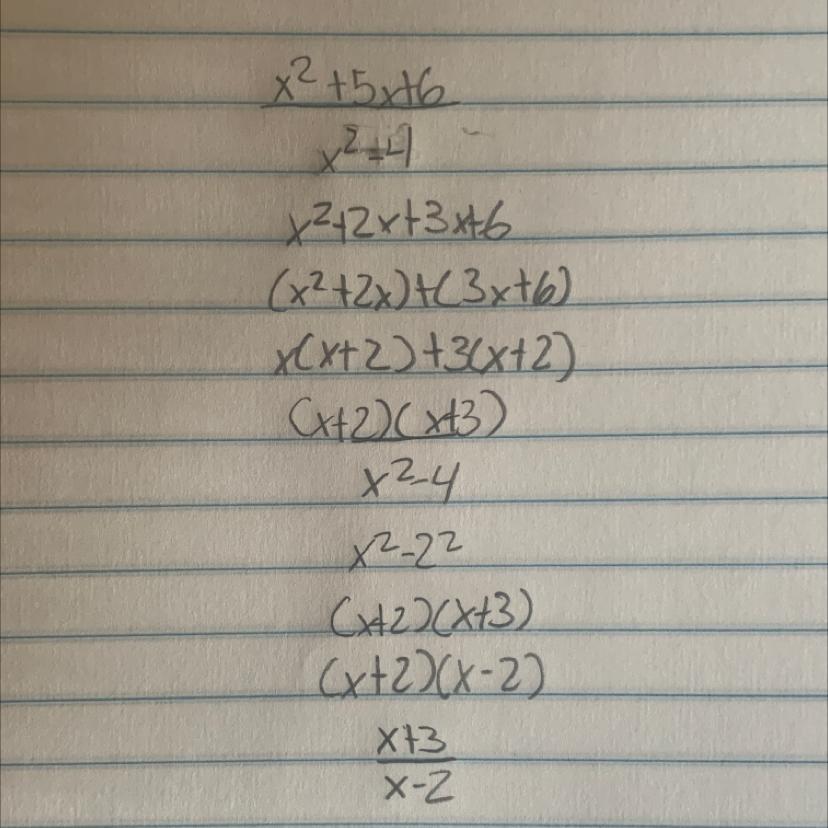 x²+5x+6
x²-4
x²+2x+3x+6
(x²+2x)+(3x+6)
x(x+2)+3(x+2)
(x+2)(x+3)
x²-4
x²-2²
(x+2)(x+3)
(x+2)(x-2)
x+3
x-2